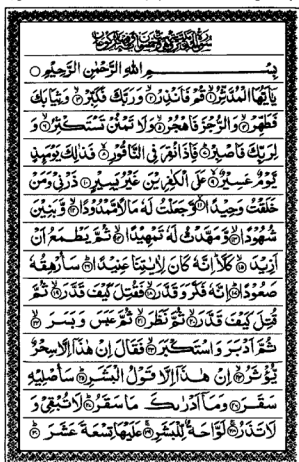 بِسْمِ اللهِ الرَّحْمٰنِ الرَّحِيْمِ ○
يٰۤاَيُّهَا الْمُدَّثِّرُ ۙ۱ قُمْ فَاَنْذِرْ ۙ۲ وَرَبَّكَ فَكَبِّرْ ۙ۳ وَثِيَابَكَ
فَطَهِّرْ ۙ۴ وَالرُّجْزَ فَاهْجُرْ ۙ۵ وَلَا تَمْنُنْ تَسْتَكْثِرُ ۙ۶ وَ
لِرَبِّكَ فَاصْبِرْ ؕ۷ فَاِذَا نُقِرَ فِى النَّاقُوْرِ ۙ۸ فَذٰلِكَ يَوْمَئِذٍ
يَّوْمٌ عَسِيْرٌ ۙ۹ عَلَى الْكٰفِرِيْنَ غَيْرُ يَسِيْرٍ ۱۰ ذَرْنِىْ وَمَنْ
خَلَقْتُ وَحِيْدًا ۙ۱۱ وَّجَعَلْتُ لَهٗ مَالًا مَّمْدُوْدًا ۙ۱۲ وَّبَنِيْنَ
شُهُوْدًا ۙ۱۳ وَّمَهَّدْتُّ لَهٗ تَمْهِيْدًا ۙ۱۴ ثُمَّ يَطْمَعُ اَنْ
اَزِيْدَ ۙ۱۵ كَلَّا ؕ اِنَّهٗ كَانَ لِاٰيٰتِنَا عَنِيْدًا ؕ۱۶ سَاُرْهِقُهٗ
صَعُوْدًا ؕ۱۷ اِنَّهٗ فَكَّرَ وَقَدَّرَ ۙ۱۸ فَقُتِلَ كَيْفَ قَدَّرَ ۙ۱۹ ثُمَّ
قُتِلَ كَيْفَ قَدَّرَ ۙ۲۰ ثُمَّ نَظَرَ ۙ۲۱ ثُمَّ عَبَسَ وَبَسَرَ ۙ۲۲
ثُمَّ اَدْبَرَ وَاسْتَكْبَرَ ۙ۲۳ فَقَالَ اِنْ هٰذَاۤ اِلَّا سِحْرٌ
يُّؤْثَرُ ۙ۲۴ اِنْ هٰذَاۤ اِلَّا قَوْلُ الْبَشَرِ ؕ۲۵ سَاُصْلِيْهِ
سَقَرَ ۲۶ وَمَاۤ اَدْرٰىكَ مَا سَقَرُ ؕ۲۷ لَا تُبْقِىْ وَ
لَا تَذَرُ ۚ۲۸ لَوَّاحَةٌ لِّلْبَشَرِ ۚۖ۲۹ عَلَيْهَا تِسْعَةَ عَشَرَ ؕ۳۰